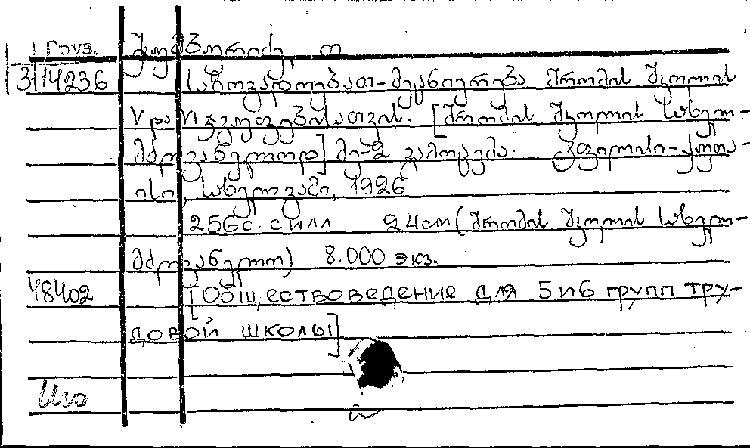 Груз. გუგბერიძე, ო
3/14236 საზოგადოებათ-მეცნიერება შრომის შკოლის
V და VI ჯგუფებისათვის. [შრომის შკოლის სახელ-
მძღვანელოდ] მე-2 გამოცემა. ტფილისი-ქუთა-
ისი, სახელგამი, 1926
256 с. с илл 24 см (შრომის შკოლის სახელ-
მძღვანელო) 8.000 экз.
48402 [Обществоведение для 5 и 6 групп тру-
довой школы]